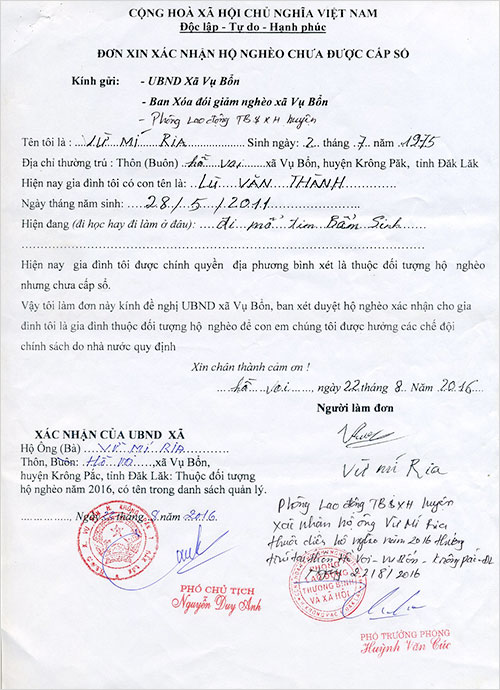 CỘNG HOÀ XÃ HỘI CHỦ NGHĨA VIỆT NAM
Độc lập - Tự do - Hạnh phúc
ĐƠN XIN XÁC NHẬN HỘ NGHÈO CHƯA ĐƯỢC CẤP SỔ
Kính gửi: - UBND Xã Vụ Bổn
- Ban Xóa đói giảm nghèo xã Vụ Bổn
- Phòng Lao động TB&XH huyện
Tên tôi là : VỪ MÍ RIA Sinh ngày: 2 tháng 7 năm 1975
Địa chỉ thường trú : Thôn (Buôn) hồ voi xã Vụ Bổn, huyện Krông Păk, tỉnh Đăk Lăk
Hiện nay gia đình tôi có con tên là: LÙ VĂN THÀNH
Ngày tháng năm sinh: 28/5/2011
Hiện đang (đi học hay đi làm ở đâu): đi mổ tim Bẩm Sinh
Hiện nay gia đình tôi được chính quyền địa phương bình xét là thuộc đối tượng hộ nghèo
nhưng chưa cấp sổ.
Vậy tôi làm đơn này kính đề nghị UBND xã Vụ Bổn, ban xét duyệt hộ nghèo xác nhận cho gia
đình tôi là gia đình thuộc đối tượng hộ nghèo để con em chúng tôi được hưởng các chế đội
chính sách do nhà nước quy định
Xin chân thành cảm ơn !
hồ voi, ngày 22 tháng 8 Năm 2016
Người làm đơn
Vừ mí Ria
XÁC NHẬN CỦA UBND XÃ
Hộ Ông (Bà) VỪ MÍ RIA
Thôn, Buôn: Hồ Voi, xã Vụ Bổn,
huyện Krông Pắc, tỉnh Đăk Lăk: Thuộc đối tượng
hộ nghèo năm 2016, có tên trong danh sách quản lý.
Ngày 8 2016
PHÓ CHỦ TỊCH
Nguyễn Duy Anh
Phòng Lao động TB&XH huyện
xác nhận hộ ông Vừ Mí Ria
thuộc diện hộ nghèo năm 2016 thường
trú tại thôn Hồ Voi - Vụ Bổn - Krông Păk - ĐL
22/8/2016
PHÒNG
THƯƠNG BINH
VÀ XÃ HỘI
PHÓ TRƯỞNG PHÒNG
Huỳnh Văn Cúc